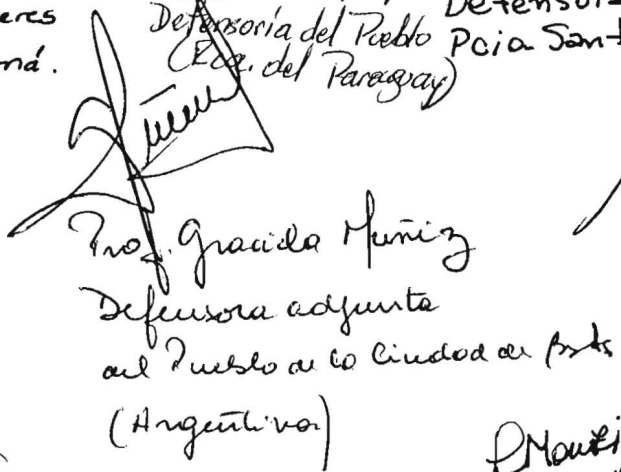 Defensoría del Pueblo
(Rca. del Paraguay)
Pcia Sant
Prof. Graciela Muñiz
Defensora adjunta
del Pueblo de la Ciudad de BsAs
(Argentina)